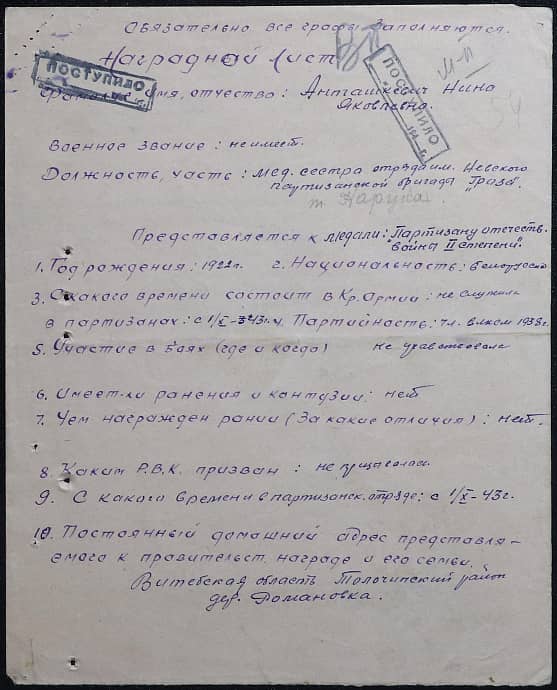 Обязательно все графы заполняются.
Наградной лист
ПОСТУПИЛО
ПОСТУПИЛО
имя, отчество: Анташкевич Нина
Яковлевна.
Военное звание: неимеет.
Должность, часть: мед. сестра отряда им. Невского
партизанской бригада "Гроза".
Представляется к медали: "Партизану отечеств.
войны II степени".
1. Год рождения: 1922г. 2. Национальность: белорусска
3. С какого времени состоит в Кр. Армии: не служила
в партизанах: с 1/X-43г. 4. Партийность: чл. влксм 1938г.
5. Участие в боях (где и когда) не учавствовала
6. Имеет-ли ранения и контузии: нет
7. Чем награжден рании (За какие отличия): нет.
8. Каким Р.В.К. призван: не призывалась
9. С какого времени в партизанск. отряде: с 1/X-43г.
10. Постоянный домашний адрес представля-
емого к правительст. награде и его семьи.
Витебская область Толочинский район
дер. Романовка.